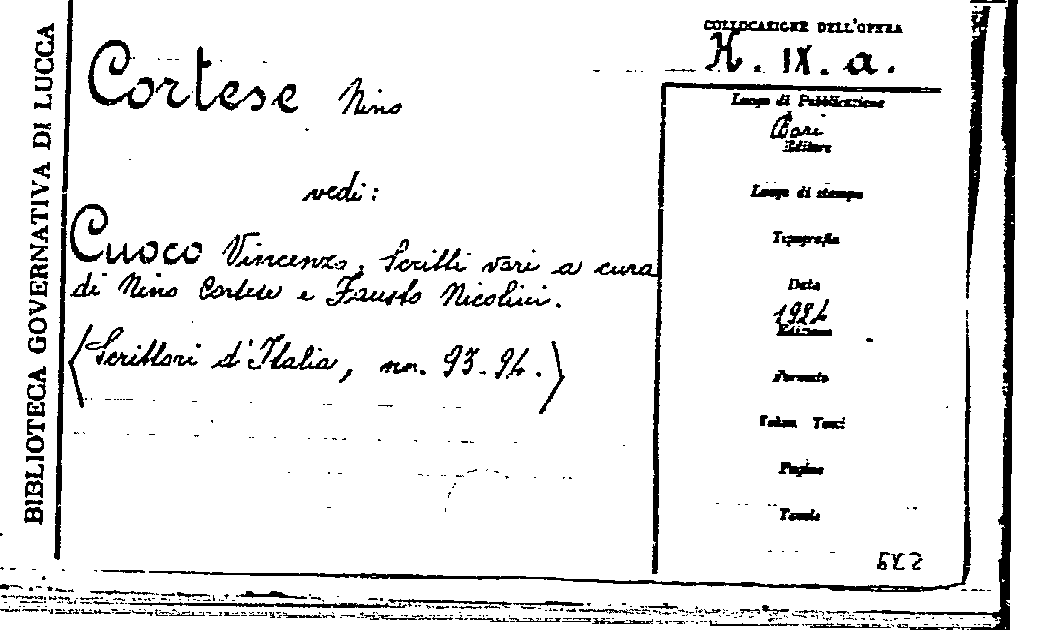 BIBLIOTECA GOVERNATIVA DI LUCCA
COLLOCAZIONE DELL'OPERA
K. IX. a.
Cortese Nino
vedi:
Cuoco Vincenzo, Scritti vari a cura
di Nino Cortese e Fausto Nicolini.
(Scrittori d'Italia, nn. 93-94.)
Luogo di Pubblicazione
Bari
Editore
Luogo di stampa
Tipografia
Data
1924
Edizione
Formato
Volumi Tomi
Pagine
Tavole